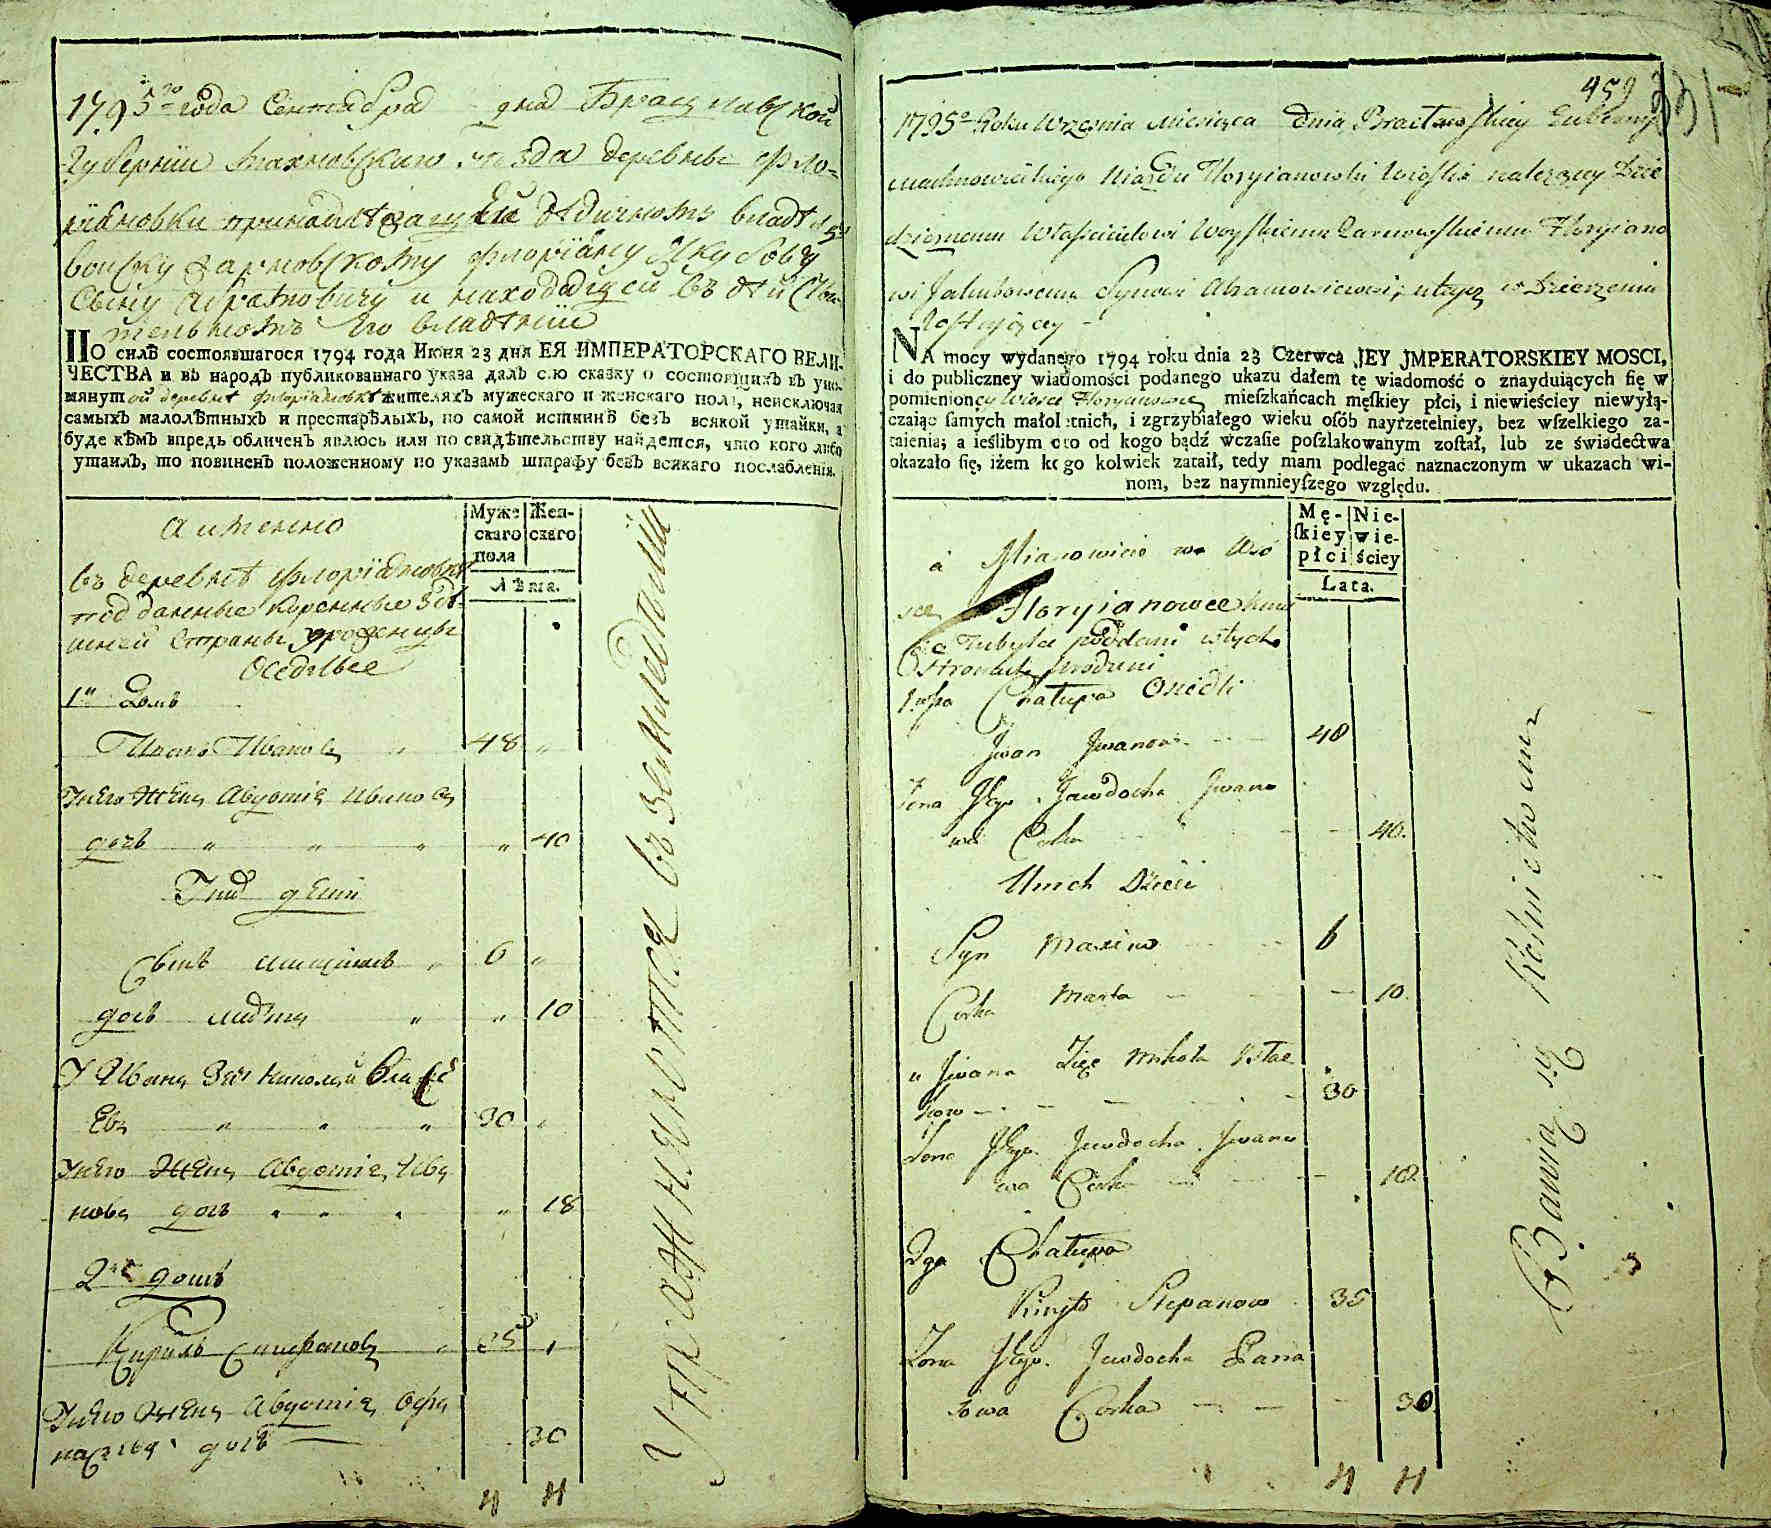 1795го года Сентября дня Брацлавской
Губернїи Махновскаго уезда деревнѣ Фло-
рїяновки принадлѣжащей дѣдичномъ владѣ
воиску Зарновскому Флорїану Якубову
Сыну Абрамовичу и находящейся въ дѣйстви
тельномъ его владѣнїи
ПО силѣ состоявшагося 1794 года Июня 23 дня ЕЯ ИМПЕРАТОРСКАГО ВЕЛИ-
ЧЕСТВА и въ народъ публикованнаго указа далъ сию сказку о состоящихъ въ упо-
мянутой деревнѣ Флорїановкѣ жителяхъ мужескаго и женскаго пола, неисключая
самыхъ малолѣтныхъ и престарѣлыхъ, по самой истиннѣ безъ всякой утайки, а
буде кѣмъ впредь обличенъ явлюсь или по свидѣтельству найдется, что кого либо
утаилъ, то повиненъ положенному по указамъ штрафу безъ всякаго послабленїя.
а имянно
Муже- скаго пола
Жен- скаго
Лѣта.
въ деревнѣ Флорїановки
подданные коренные здѣ
шней страны уроженцы
Оседлые
1й Домъ
Иванъ Ивановъ 48
У него жена Авдотїя Иванова
дочь 40
У них дети
Сынъ 6
дочь 10
У Ивана зять Николай
евъ 30
У него жена Авдотїя Ива
нова дочь 18
2й домъ
Кирилъ Степановъ 35
У него жена Авдотїя
дочь 30
4 4
Упражняются въ земледѣлїи
459
1795o Roku Września Miesiąca Dnia Bracławskiey Guberny
Machnowieckiego Uiazdu Floryianowki Wioski należący Dzie
dzicznemu Właścicielowi Woyskiemu Żarnowskiemu Floryiano
wi Jakubowemu Synowi Abramowiczowi, w Dzierżeniu
NA mocy wydanego 1794 roku dnia 23 Czerwca JEY JMPERATORSKIEY MOSCI,
i do publiczney wiadomości podanego ukazu dałem tę wiadomość o znayduiących się w
pomienioney Wiosce Floryanowce mieszkańcach męskiey płci, i niewieściey niewyłą-
czaiąc samych małoletnich, i zgrzybiałego wieku osób nayrzetelniey, bez wszelkiego za-
taienia; a ieślibym oto od kogo bądź wczasie poszlakowanym został, lub ze świadectwa
okazało się, iżem kogo kolwiek zataił, tedy mam podlegać naznaczonym w ukazach wi-
nom, bez naymnieyszego względu.
a Mianowicie we Wio
Mę- skiey płci
Nie- wie- ściey
Lata.
sce Floryianowce
poddani wtych
stronach urodzeni
1wsza Chałupa Osiedli
Jwan Jwanow 48
Żona Jego Jawdocha Jwano
wa Corka 40.
U nich Dzieci
Syn Maxim 6
Corka Marta 10.
u Jwana Zięć Mikoła
30
Żona Jego Jawdocha Jwano
wa Corka 18
2ga Chałupa
Kiryło Stepanow 35
Żona Jego Jawdocha
Corka 30
4 4
Bawią się Rolnictwem